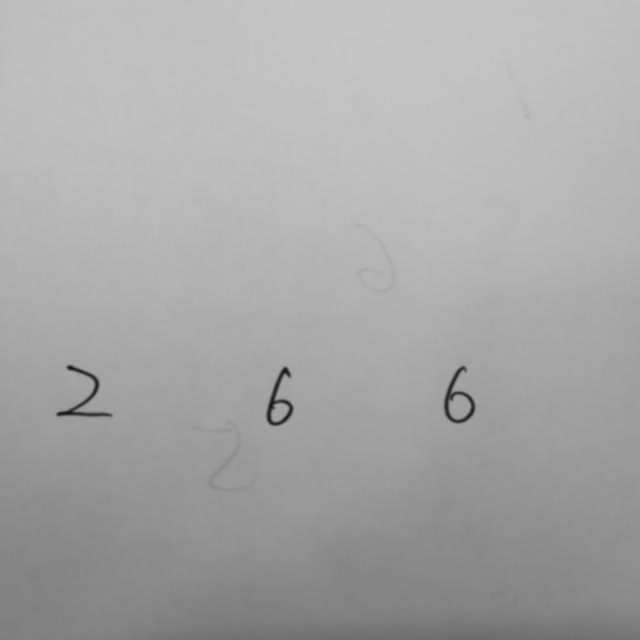 2 6 6